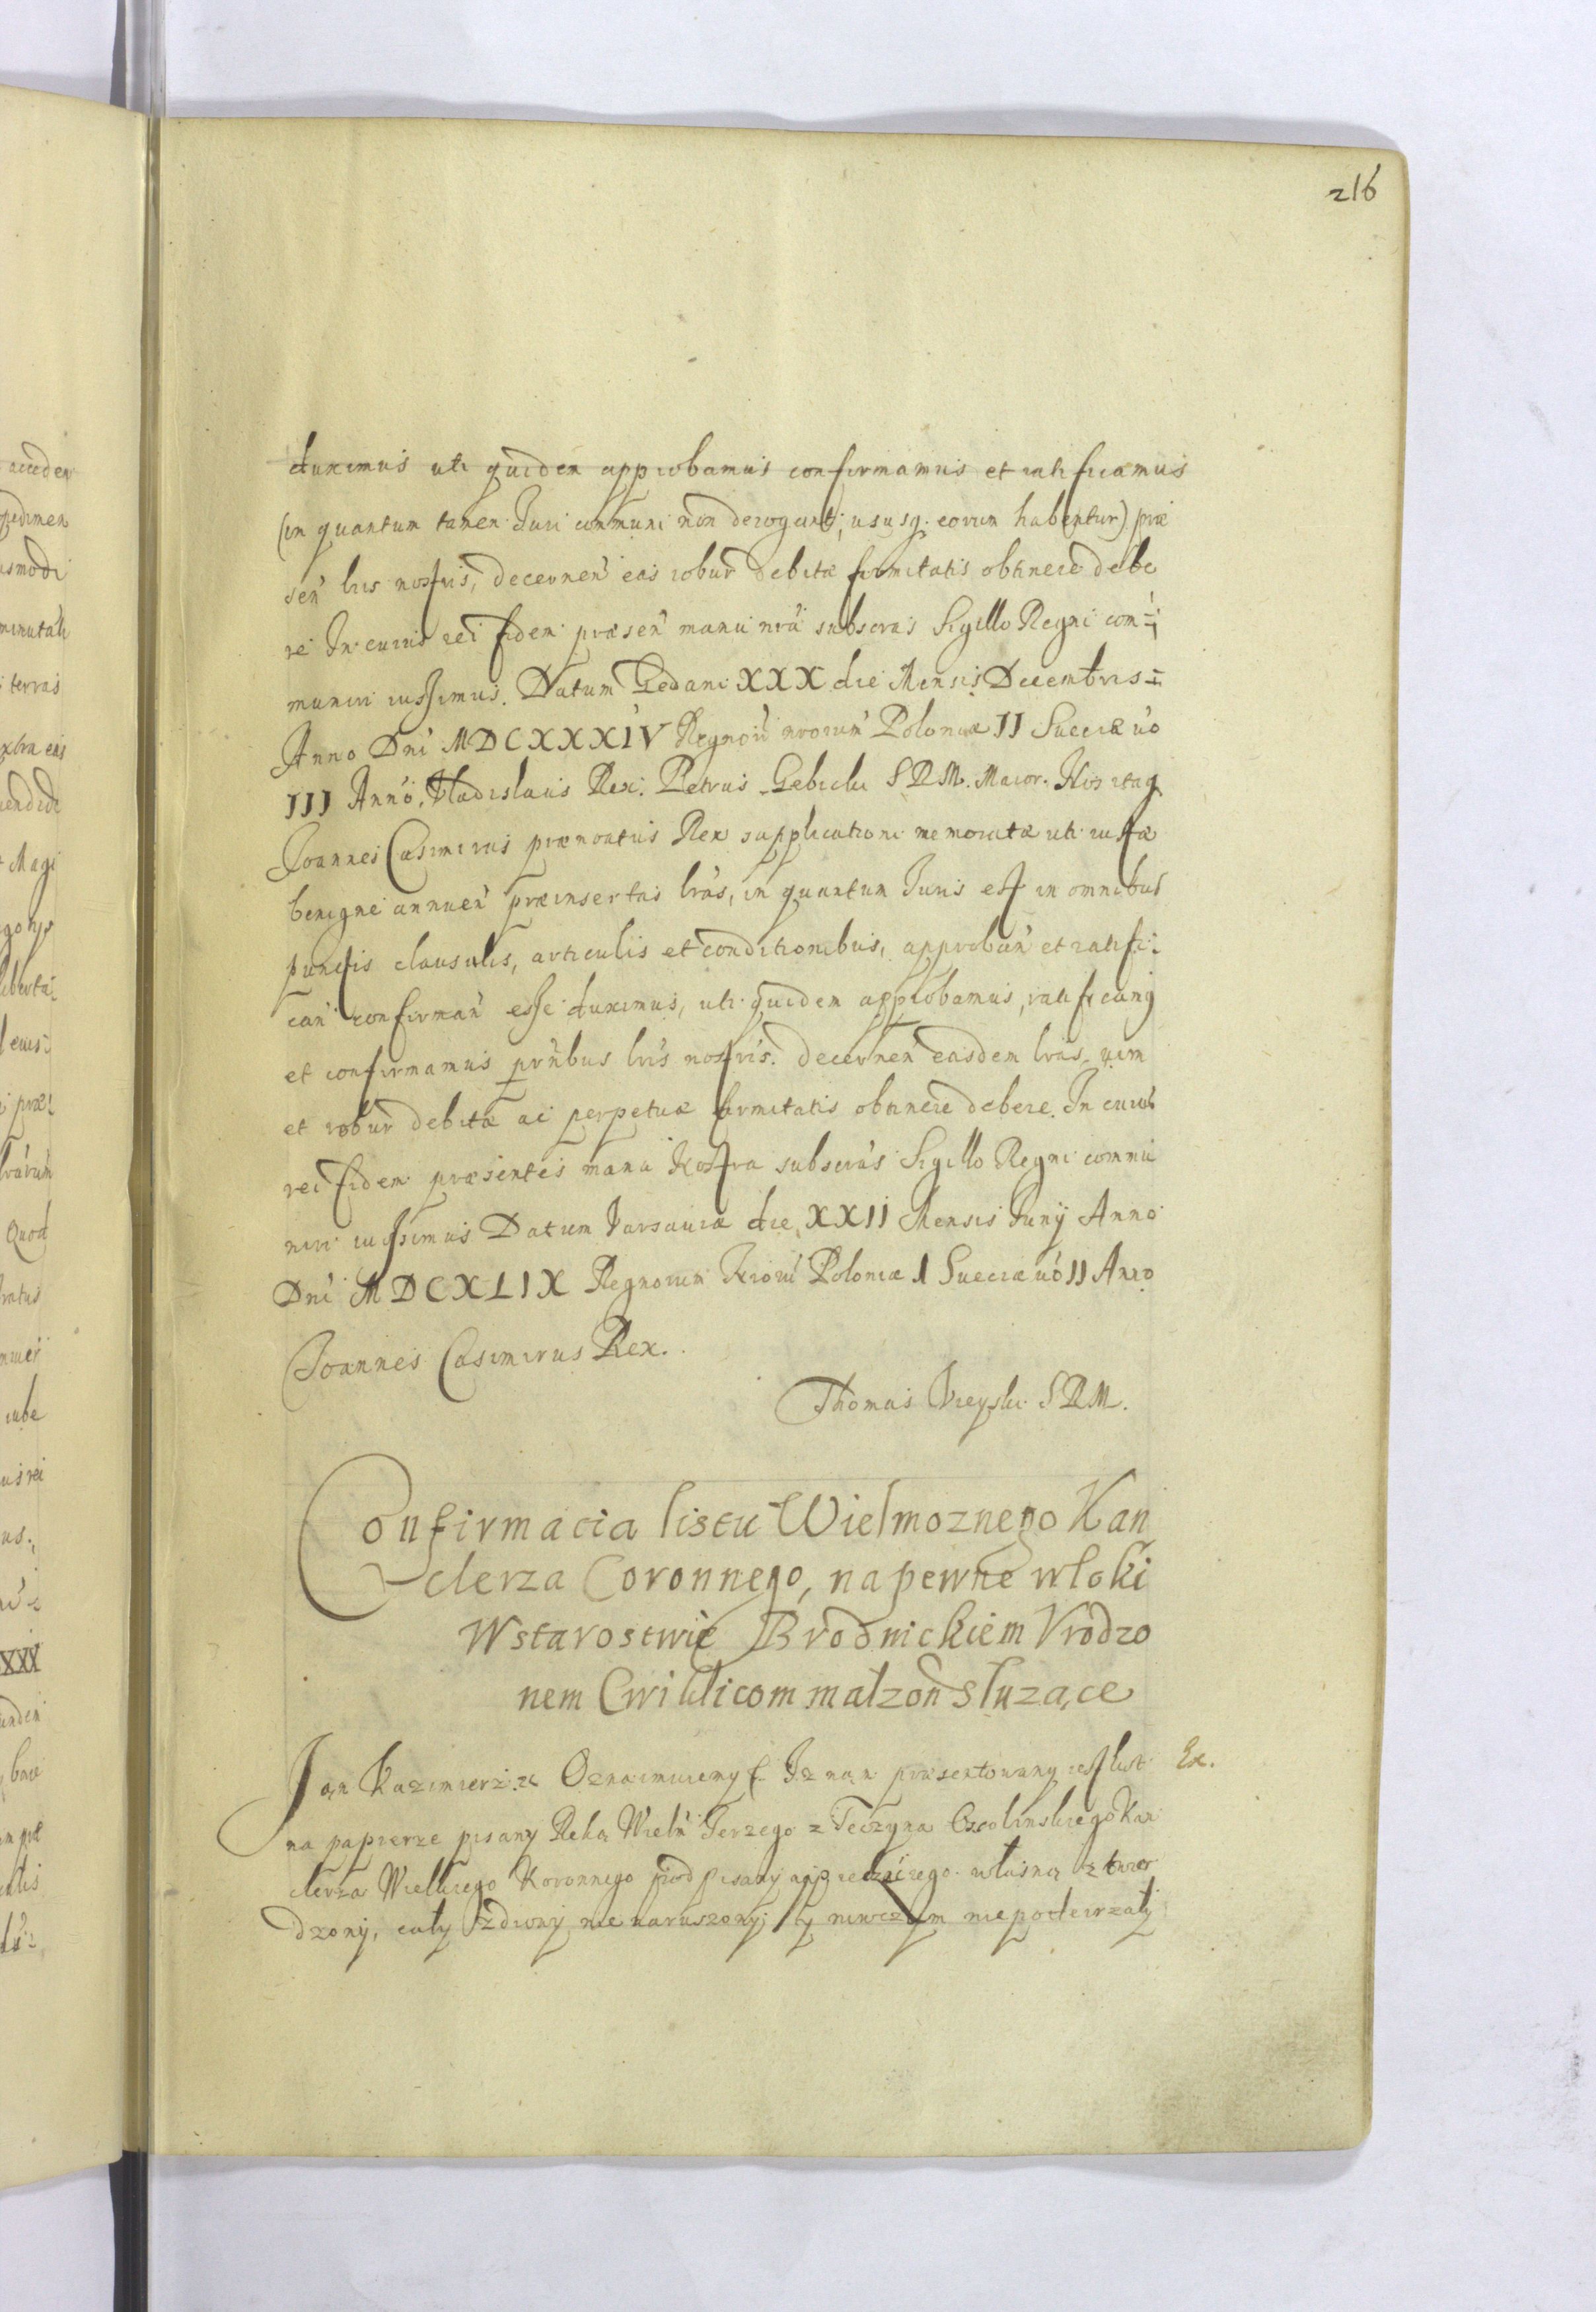 216
duximus uti quidem approbamus confirmamus et ratificamus
(in quantum tamen Juri communi non derogant, ususq. eorum habentur) præ
sen̄ lris nostris, decernen̄ eas robur debitæ firmitatis obtinere debe
re In cuius rei fidem præsen̄ manu nrā subscras Sigillo Regni com=
muniri iussimus. Datum Gedani XXX die Mensis Decembris=
Anno Dni MDCXXXIV Regnorū nrorum Poloniæ II Sueciæ vo
III Anno. Vladislaus Rex. Petrus Gebicki SRM. Maior. Nos itaq
Joannes Casimirus præmoatus Rex supplicationi memoratæ uti iustæ
benigne annuen̄ præinsertas lras, in quantum Juris est in omnibus
punctis clausulis, articulis et conditionibus, approban̄ et ratifi:
can̄ confirman̄ esse duximus, uti quidem approbamus, ratificamꝯ
et confirmamus prnībus lris nostris. decernen̄ easdem lras vim
et robur debitæ ac perpetuæ firmitatis obtinere debere. In cuius
rei fidem præsentes manu Nostra subscras Sigillo Regni commu
niri iussimus Datum Varsaviæ die XXII Mensis Junij Anno
Dni MDCXLIX Regnorum Nrorū Poloniæ I Sueciæ vo II Anno
Joannes Casimirus Rex.
Thomas Vieyski SRM.
Confirmacia listu Wielmoznego Kan
clerza Coronnego, na pewne wloki
W starostwie Brodnickiem Vrodzo
nem Cwiklicom małzon̄ służące
Jan Kazimierz &c Oznaimuiemy &. Iz nam præsentowany iest list Ex.
na papierze pisany Ręką Wieln̄ Jerzego z Teczyna Ossolinskiego Kan
clerza Wielkiego Koronnego podpisany własną ztwier
dzony, cały zdrowy nie naruszony y niwczym nie podeirzały